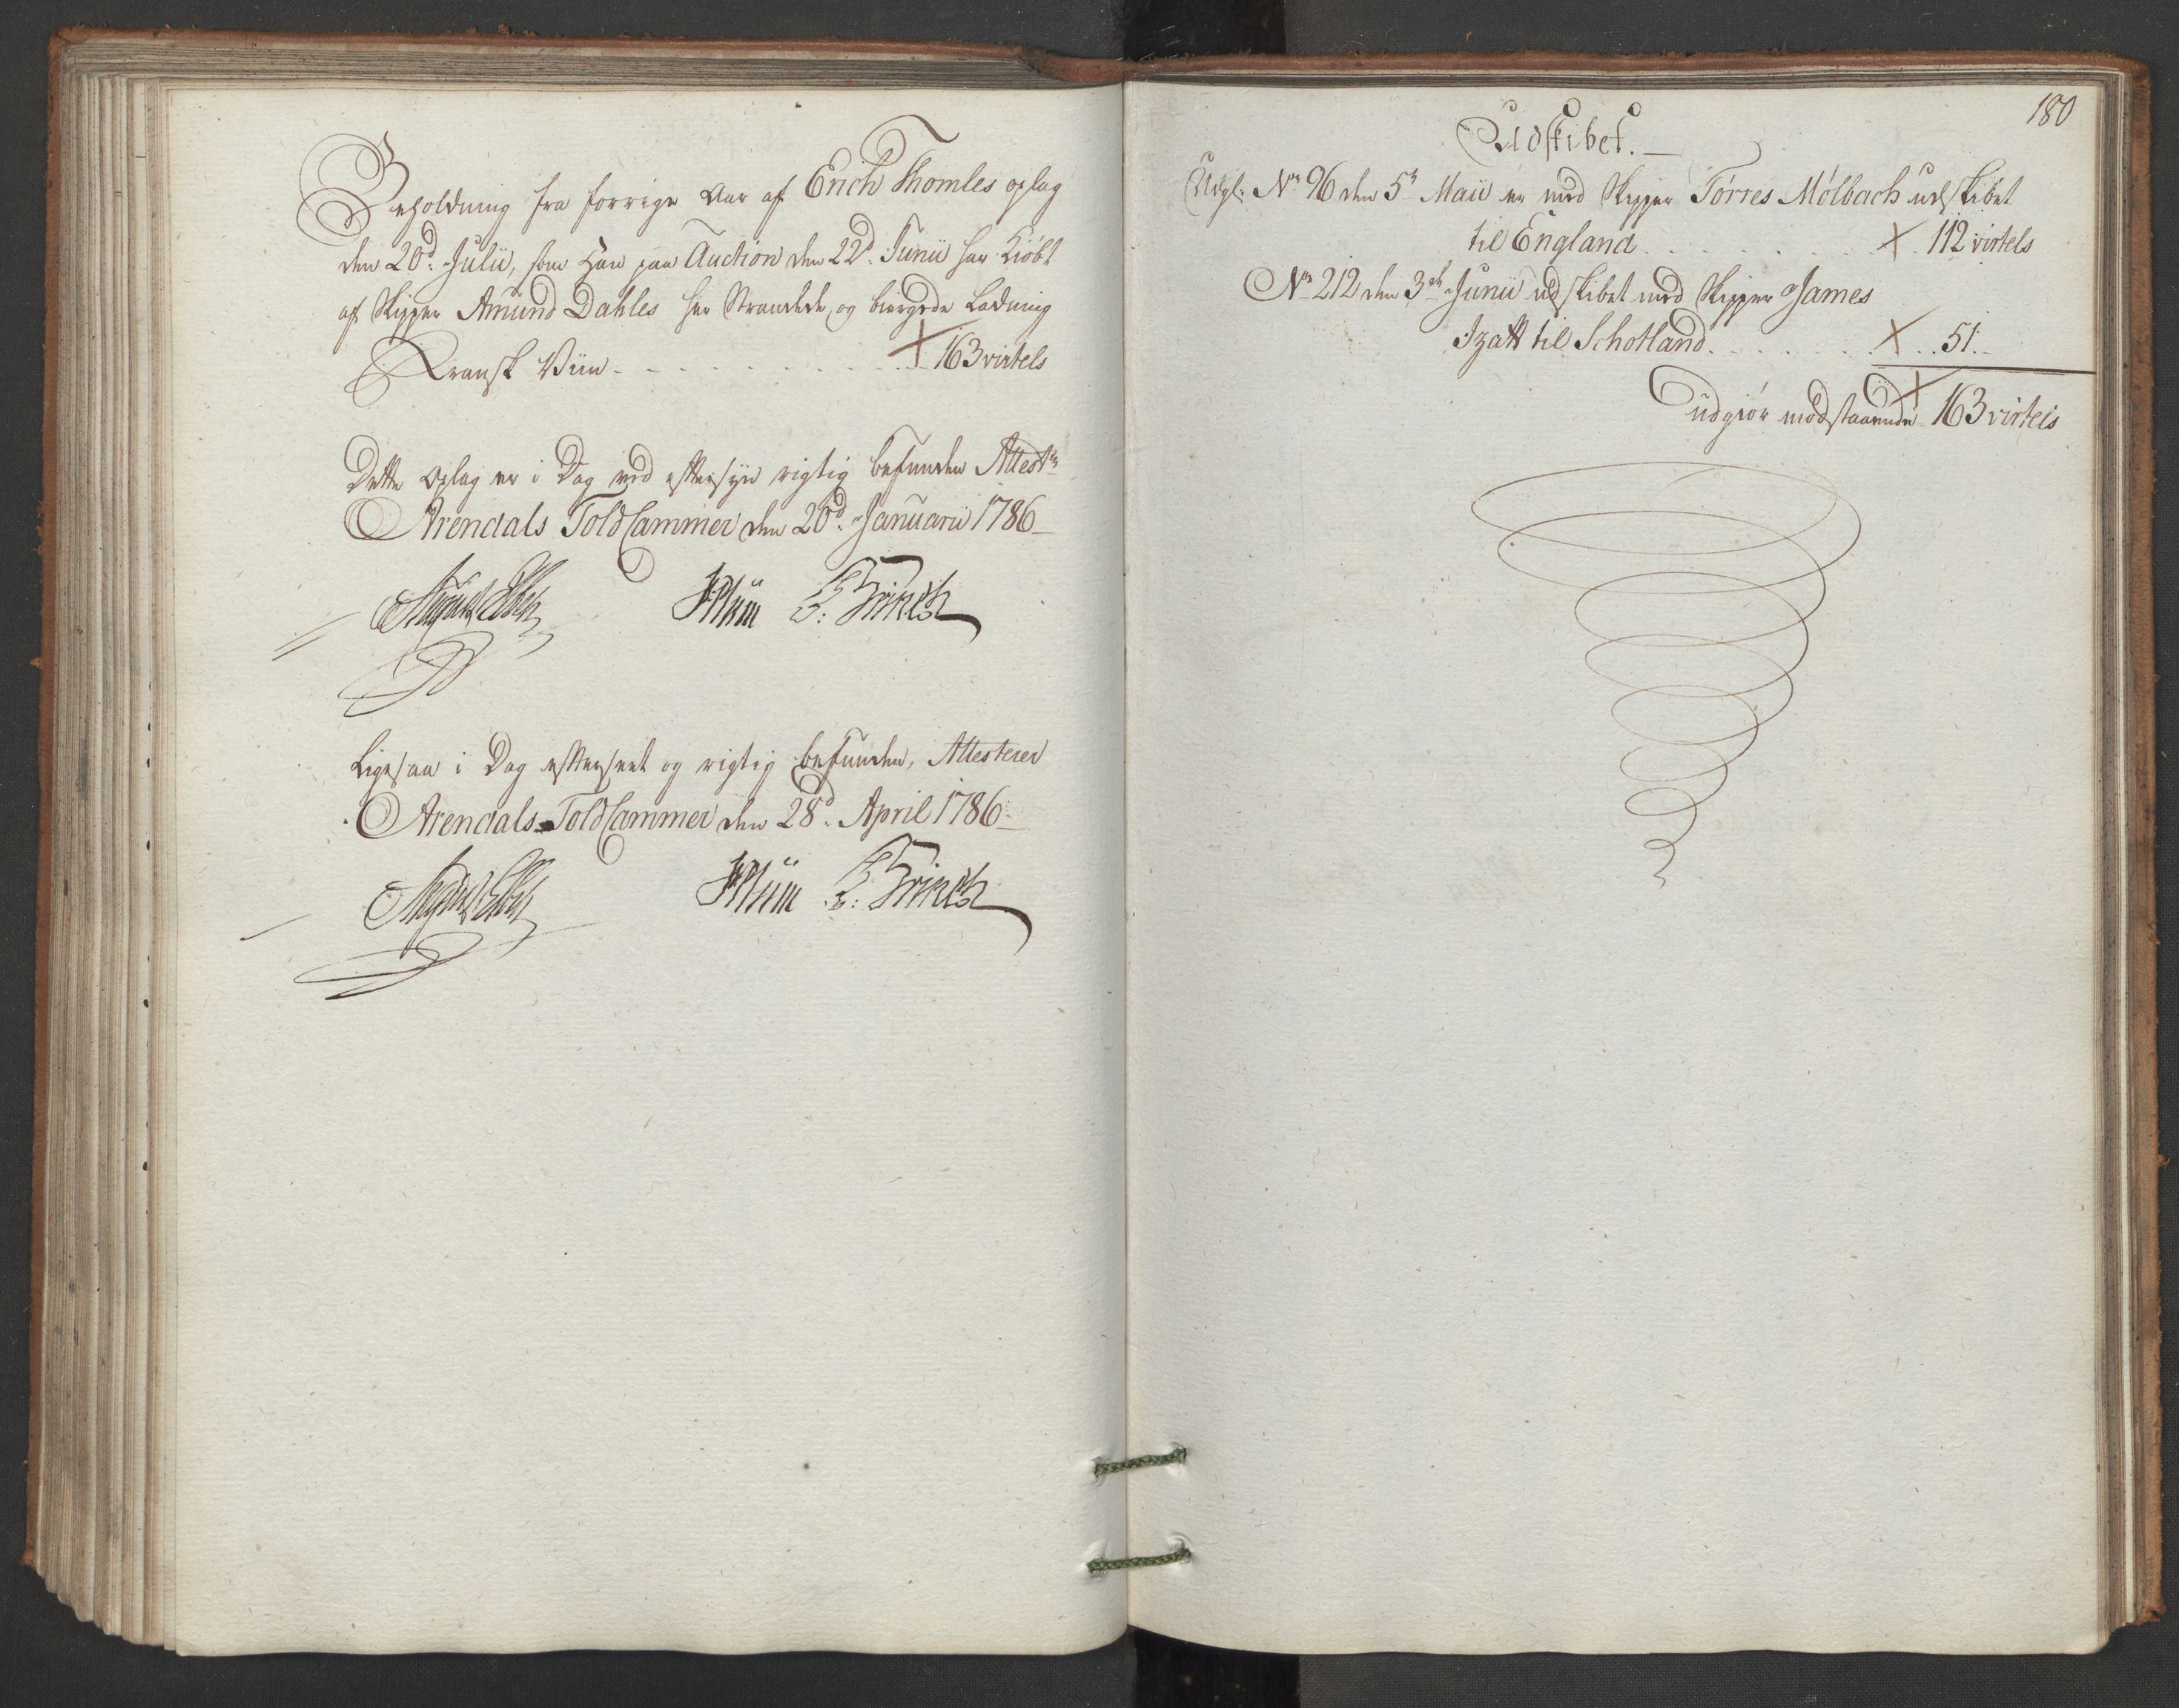 Beholdning fra forrige Aar af Erich Thomles oplag
den 20d. Julii, som Han paa Auction den 22d. Junii har Kiöbt
af Skipper Amund Dahles her Strandede og biergede Ladning
Fransk Viin - - - 163 virtels
Dette Oplag er i Dag ved eftersyn rigtig befunden Attestr
Arendals Told Cammer den 20d. Januarii 1786
Plüm
Ligesaa i Dag efterseet og rigtig befunden, Attesterer
Arendals Told Cammer den 28d. April 1786
Plüm
180
Udskibet.
Udgl: No 96 den 5te Maii er med Skipper Törres Mölbach udskibet
til England . . . . . 112 virtels
No 212 den 3de Junii udskibet med Skipper James
Izatt til Schotland . . . . . 51.
udgiör modstaaende 163 virtels